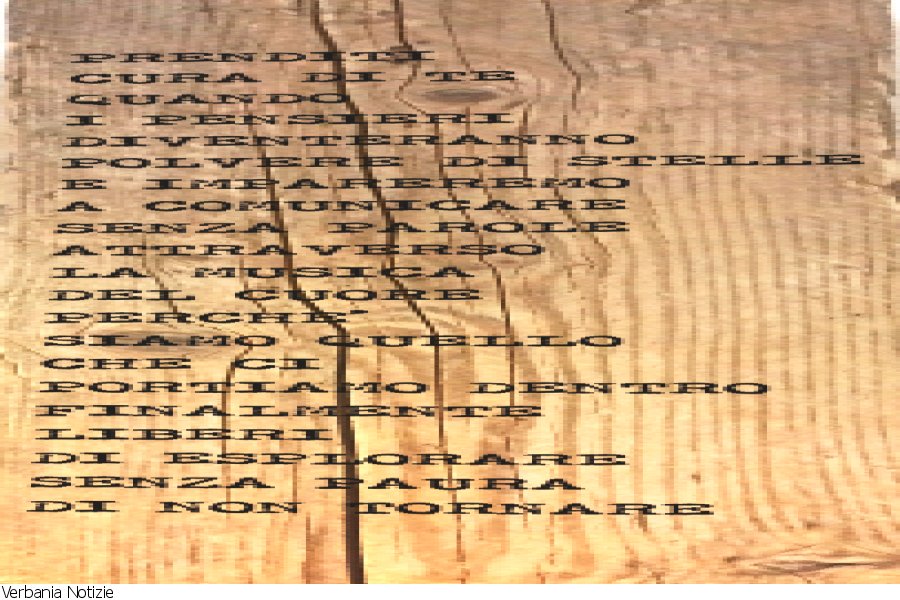 PRENDITI
CURA DI TE
QUANDO
I PENSIERI
DIVENTERANNO
POLVERE DI STELLE
E IMPAREREMO
A COMUNICARE
SENZA PAROLE
ATTRAVERSO
LA MUSICA
DEL CUORE
PERCHE'
SIAMO QUELLO
CHE CI
PORTIAMO DENTRO
FINALMENTE
LIBERI
DI ESPLORARE
SENZA PAURA
DI NON TORNARE
Verbania Notizie